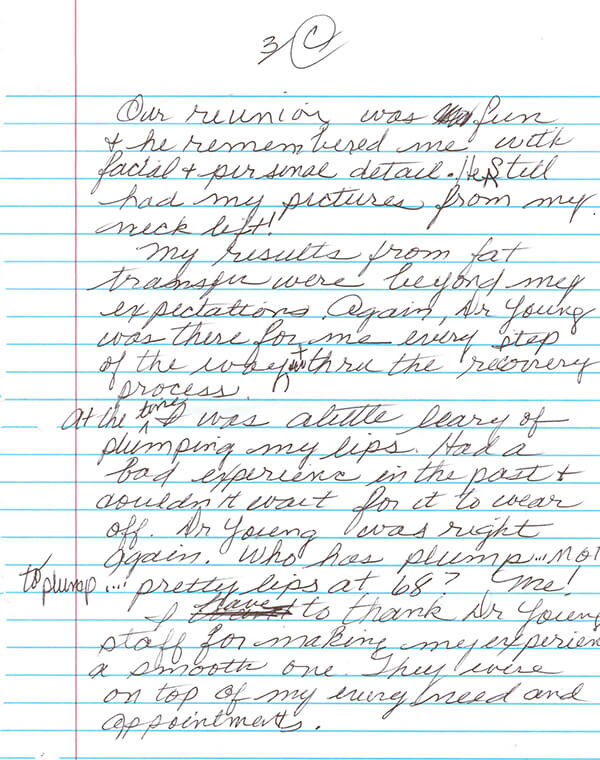 3 C
Our reunion was fun
& he remembered me with
facial & personal detail. He Still
had my pictures from my
neck lift!
My results from fat
transfer were beyond my
expectations. Again, Dr Young
was there for me every step
of the way + thru the recovery
process.
At the time I was a little leary of
plumping my lips. Had a
bad experienc in the past &
couldn't wait for it to wear
off. Dr Young was right
again. Who has plump... not
to plump.... pretty lips at 68? Me!
I have to thank Dr Young
staff for making my experien
a smooth one. They were
on top of my every need and
appointments.